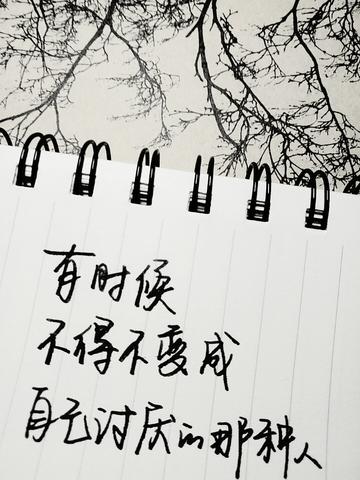 有时候
不得不变成
自己讨厌的那种人